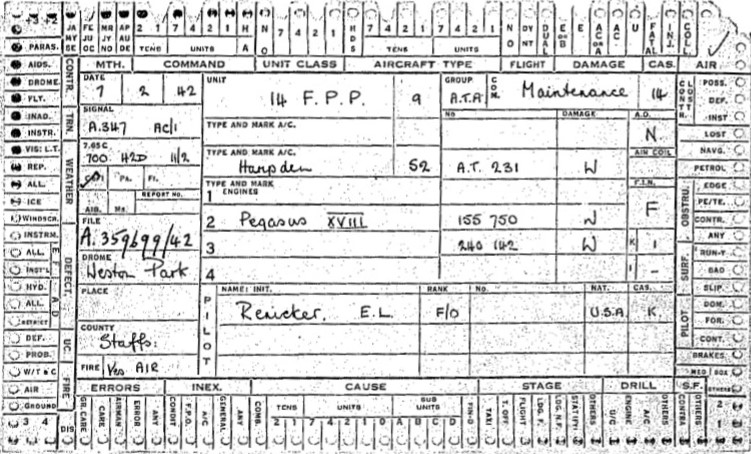 JA MY SE
FE JU OC
MR JY NO
AP AU DE
2 1 7 4 2 1
TENS UNITS
H A
N O
7 4 2 1
HDS
7 4 2 1 7 4 2 1
TENS UNITS
N O
DY NT
DUAL
E or B
E
AC or A
ACC
U
FATAL
INJ.
COLL.
MTH. COMMAND UNIT CLASS AIRCRAFT TYPE FLIGHT DAMAGE CAS. AIR
PARAS.
AIDS.
DROME.
FLT.
INAD.
INSTR.
VIS: L.T.
REP.
ALL.
ICE
WINDSCR.
INSTRM.
ALL.
INST'L
HYD.
ALL.
DISTRICT
DEF.
PROB.
W/T & C
AIR
GROUND
3 4
CONTR.
TRN.
WEATHER
DEFECT.
UC.
FIRE
DIS.
DATE
7 2 42
SIGNAL
A.347 AC/1
700 H2D 11/2
Pa. Fl.
REPORT No.
AIB. Ms.
FILE
A.359699/42
DROME
Weston Park
PLACE
COUNTY
Staffs:
FIRE Yes AIR
UNIT
14 F.P.P. 9
GROUP
A.T.A.
COM.
Maintenance 14
TYPE AND MARK A/C.
NO DAMAGE A.D.
N
TYPE AND MARK A/C.
AIR COLL
Hampden 52 A.T. 231 W
TYPE AND MARK ENGINES
F.I.N.
1
F
2 Pegasus XVIII 155 750 W
3 240 142 W K 1
4 I -
PILOT
NAME: INIT. RANK No. NAT. CAS.
Renicker. E.L. F/O U.S.A. K.
POSS.
DEF.
INST
LOST
NAVG.
PETROL
EDGE
PE/TE.
CONTR.
ANY
RUN-Y
BAD
SLIP.
DOM.
FOR.
CONT.
BRAKES
MED BOX
OTHERS
2
1
CONTR.
LOST
OBSTRU.
SURF.
PILOT
ERRORS INEX. CAUSE STAGE DRILL S.F.
GR. CARE
CARE
AIRMAN
ERROR
ANY
CONDIT
F.P.O.
A/C
GENERAL
ANY
COMB.
TENS UNITS SUB UNITS
2 1 7 4 2 1 0 A B C D
FIN-D
TAXI
T. OFF
FLIGHT
LDG. F.
LDG. R.F.
STAT'Y
OTHERS
U/C
ENGINE
A/C
OTHERS
CONTRA
OTHERS